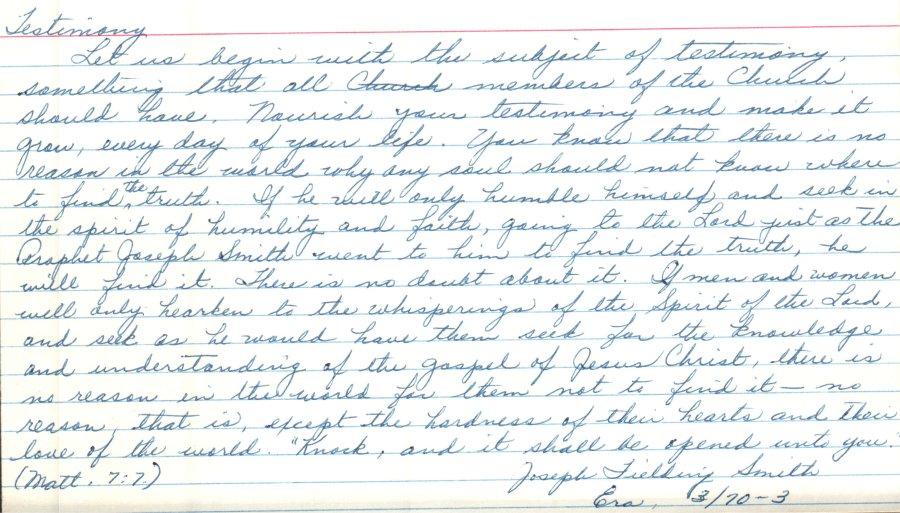 Testimony
Let us begin with the subject of testimony,
something that all Church members of the Church
should have. Nourish your testimony and make it
grow, every day of your life. You know that there is no
reason in the world why any soul should not know where
to find the truth. If he will only humble himself and seek in
the spirit of humility and faith, going to the Lord just as the
Prophet Joseph Smith went to him to find the truth, he
will find it. There is no doubt about it. If men and women
will only hearken to the whisperings of the Spirit of the Lord,
and seek as he would have them seek for the knowledge
and understanding of the gospel of Jesus Christ, there is
no reason in the world for them not to find it — no
reason, that is, except the hardness of their hearts and their
love of the world. "Knock, and it shall be opened unto you."
(Matt. 7:7.)
Joseph Fielding Smith
Era, 3/70-3